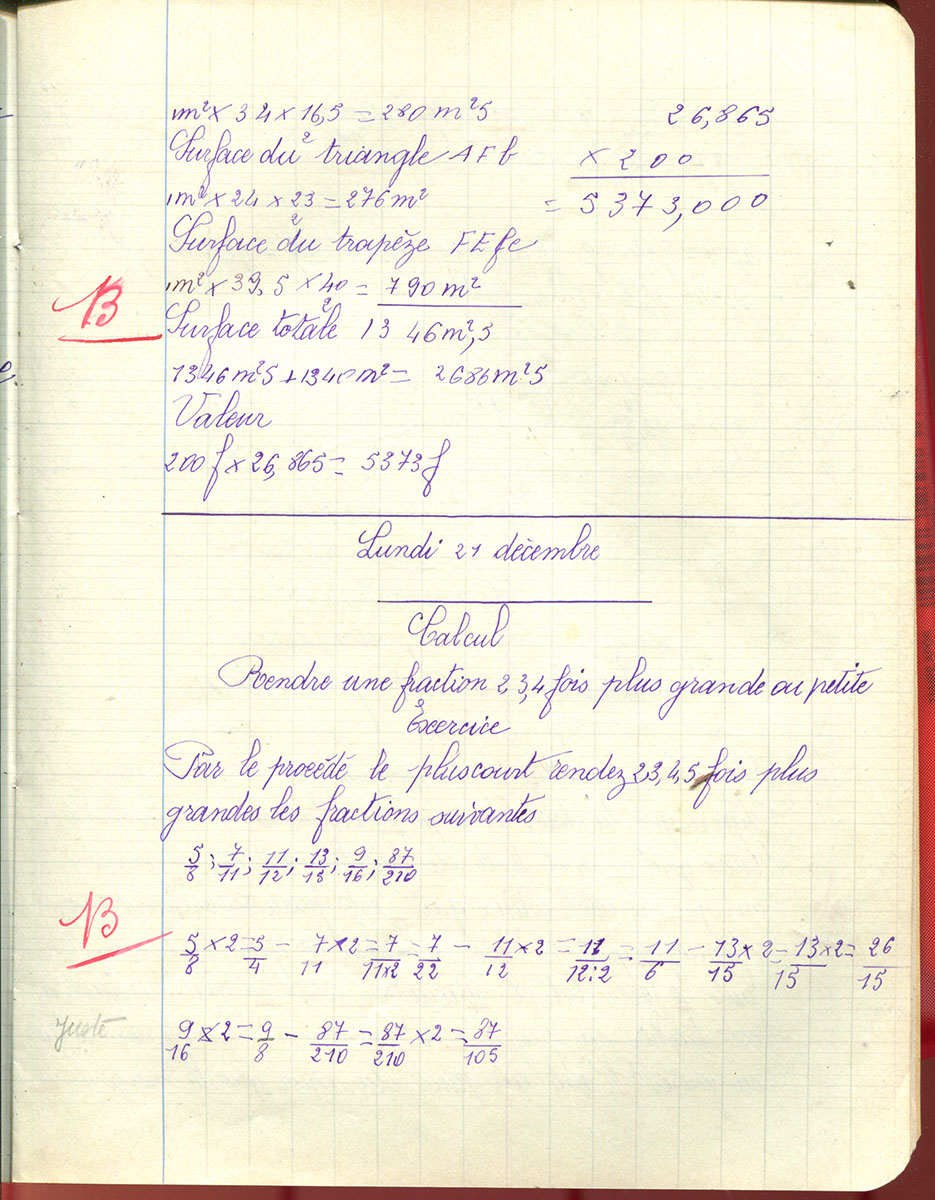 1m²×34×16,5=280m²5
2
26,865
×200
=5373,000
Surface du triangle AFb
1m²×24×23=276m²
2
Surface du trapèze FEfe
1m²×39,5×40=790m²
2
B
Surface totale 1346m²,5
1346m²5+1340m²= 2686m²5
Valeur
200f×26,865= 5373f
Lundi 21 décembre
Calcul
Rendre une fraction 2 3,4 fois plus grande ou petite
Exercice
Par le procédé le plus court rendez 2,3,4,5 fois plus
grandes les fractions suivantes
5/8; 7/11; 11/12; 13/15; 9/16; 87/210
B
5/8×2=5/4 - 7/11×2=7/11×2=7/22 - 11/12×2=11/12:2=11/6 - 13/15×2=13×2/15=26/15
Juste
9/16×2=9/8 - 87/210=87/210×2=87/105